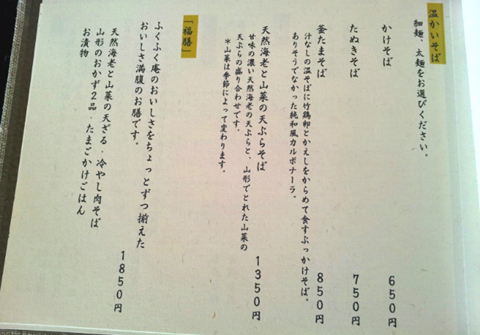 温かいそば
細麺、太麺をお選びください。
かけそば 650円
たぬきそば 750円
釜たまそば 850円
汁なしの温そばに竹鶏卵とかえしをからめて食すぶっかけそば。
ありそうでなかった純和風カルボナーラ。
天然海老と山菜の天ぷらそば 1350円
甘味の濃い天然海老の天ぷらと、山形でとれた山菜の
天ぷらの盛り合わせです。
＊山菜は季節によって変わります。
「福膳」
ふくふく庵のおいしさをちょっとずつ揃えた
おいしさ満腹のお膳です。
天然海老と山菜の天ざる・冷やし肉そば
山形のおかず2品・たまごかけごはん
お漬物 1850円